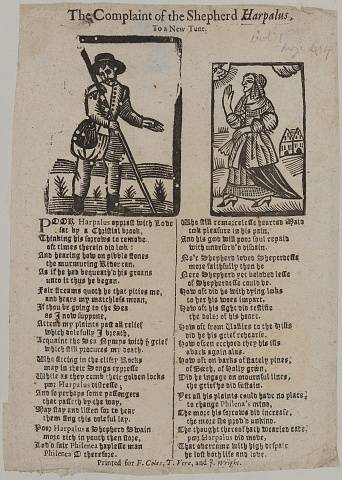 The Complaint of the Shepherd Harpalus.
To a New Tune.
POOR Harpalus opprest with Love
sat by a Christial brook,
Thinking his sorrows to remove
oft times therein did look:
And hearing how on pibble stones
the murmuring River ran,
As if he had bequeath'd his groans
unto it thus he began.
Fair streams quoth he that pities me,
and hears my matchless moan,
If thou be going to the Sea
as I now suppose,
Attend my plaints past all relief
which dolefully I breath,
Acquaint the Sea Nymps with ye grief
which still procures my death.
Who sitting in the cliffy Rocks
may in their Songs expresse
While as they comb their golden locks
poor Harpalus distresse;
And so perhaps some passenger
that passeth by the way,
May stay and listen for to hear
them sing this doleful lay.
Poor Harpalus a Shepherd Swain
more rich in youth then store,
Lov'd fair Philenea hapless man
Philenea O therefore.
Who still remorceless hearted Maid
took pleasure in his pain,
And his good will poor soul repaid
with undeserv'd disdain.
Ne'r Shepherd loved Shepherdess
more faithfully then he
Nere Shepherd yet beloved less
of Shepherdess could be.
How oft did he with dying looks
to her his woes impart,
How oft his sight did testifie
the dolor of his heart.
How oft from Vallies to the Hills
did he his grief rehearse,
How often ecchoed they his ills
aback again alas.
How oft on barks of stately pines,
of Beech, of Holly green,
Did he ingrave on mournful lines,
the grief he did sustain.
Yet all his plaints could have no place,
to change Philena's mind,
The more his sorrows did increase,
the more she prov'd unkind.
The thought thereof hath wearied care
poor Harpalus did move,
That overcome with high despair
he lost both life and love.
Printed for F. Coles, T. Vere, and J. Wright.